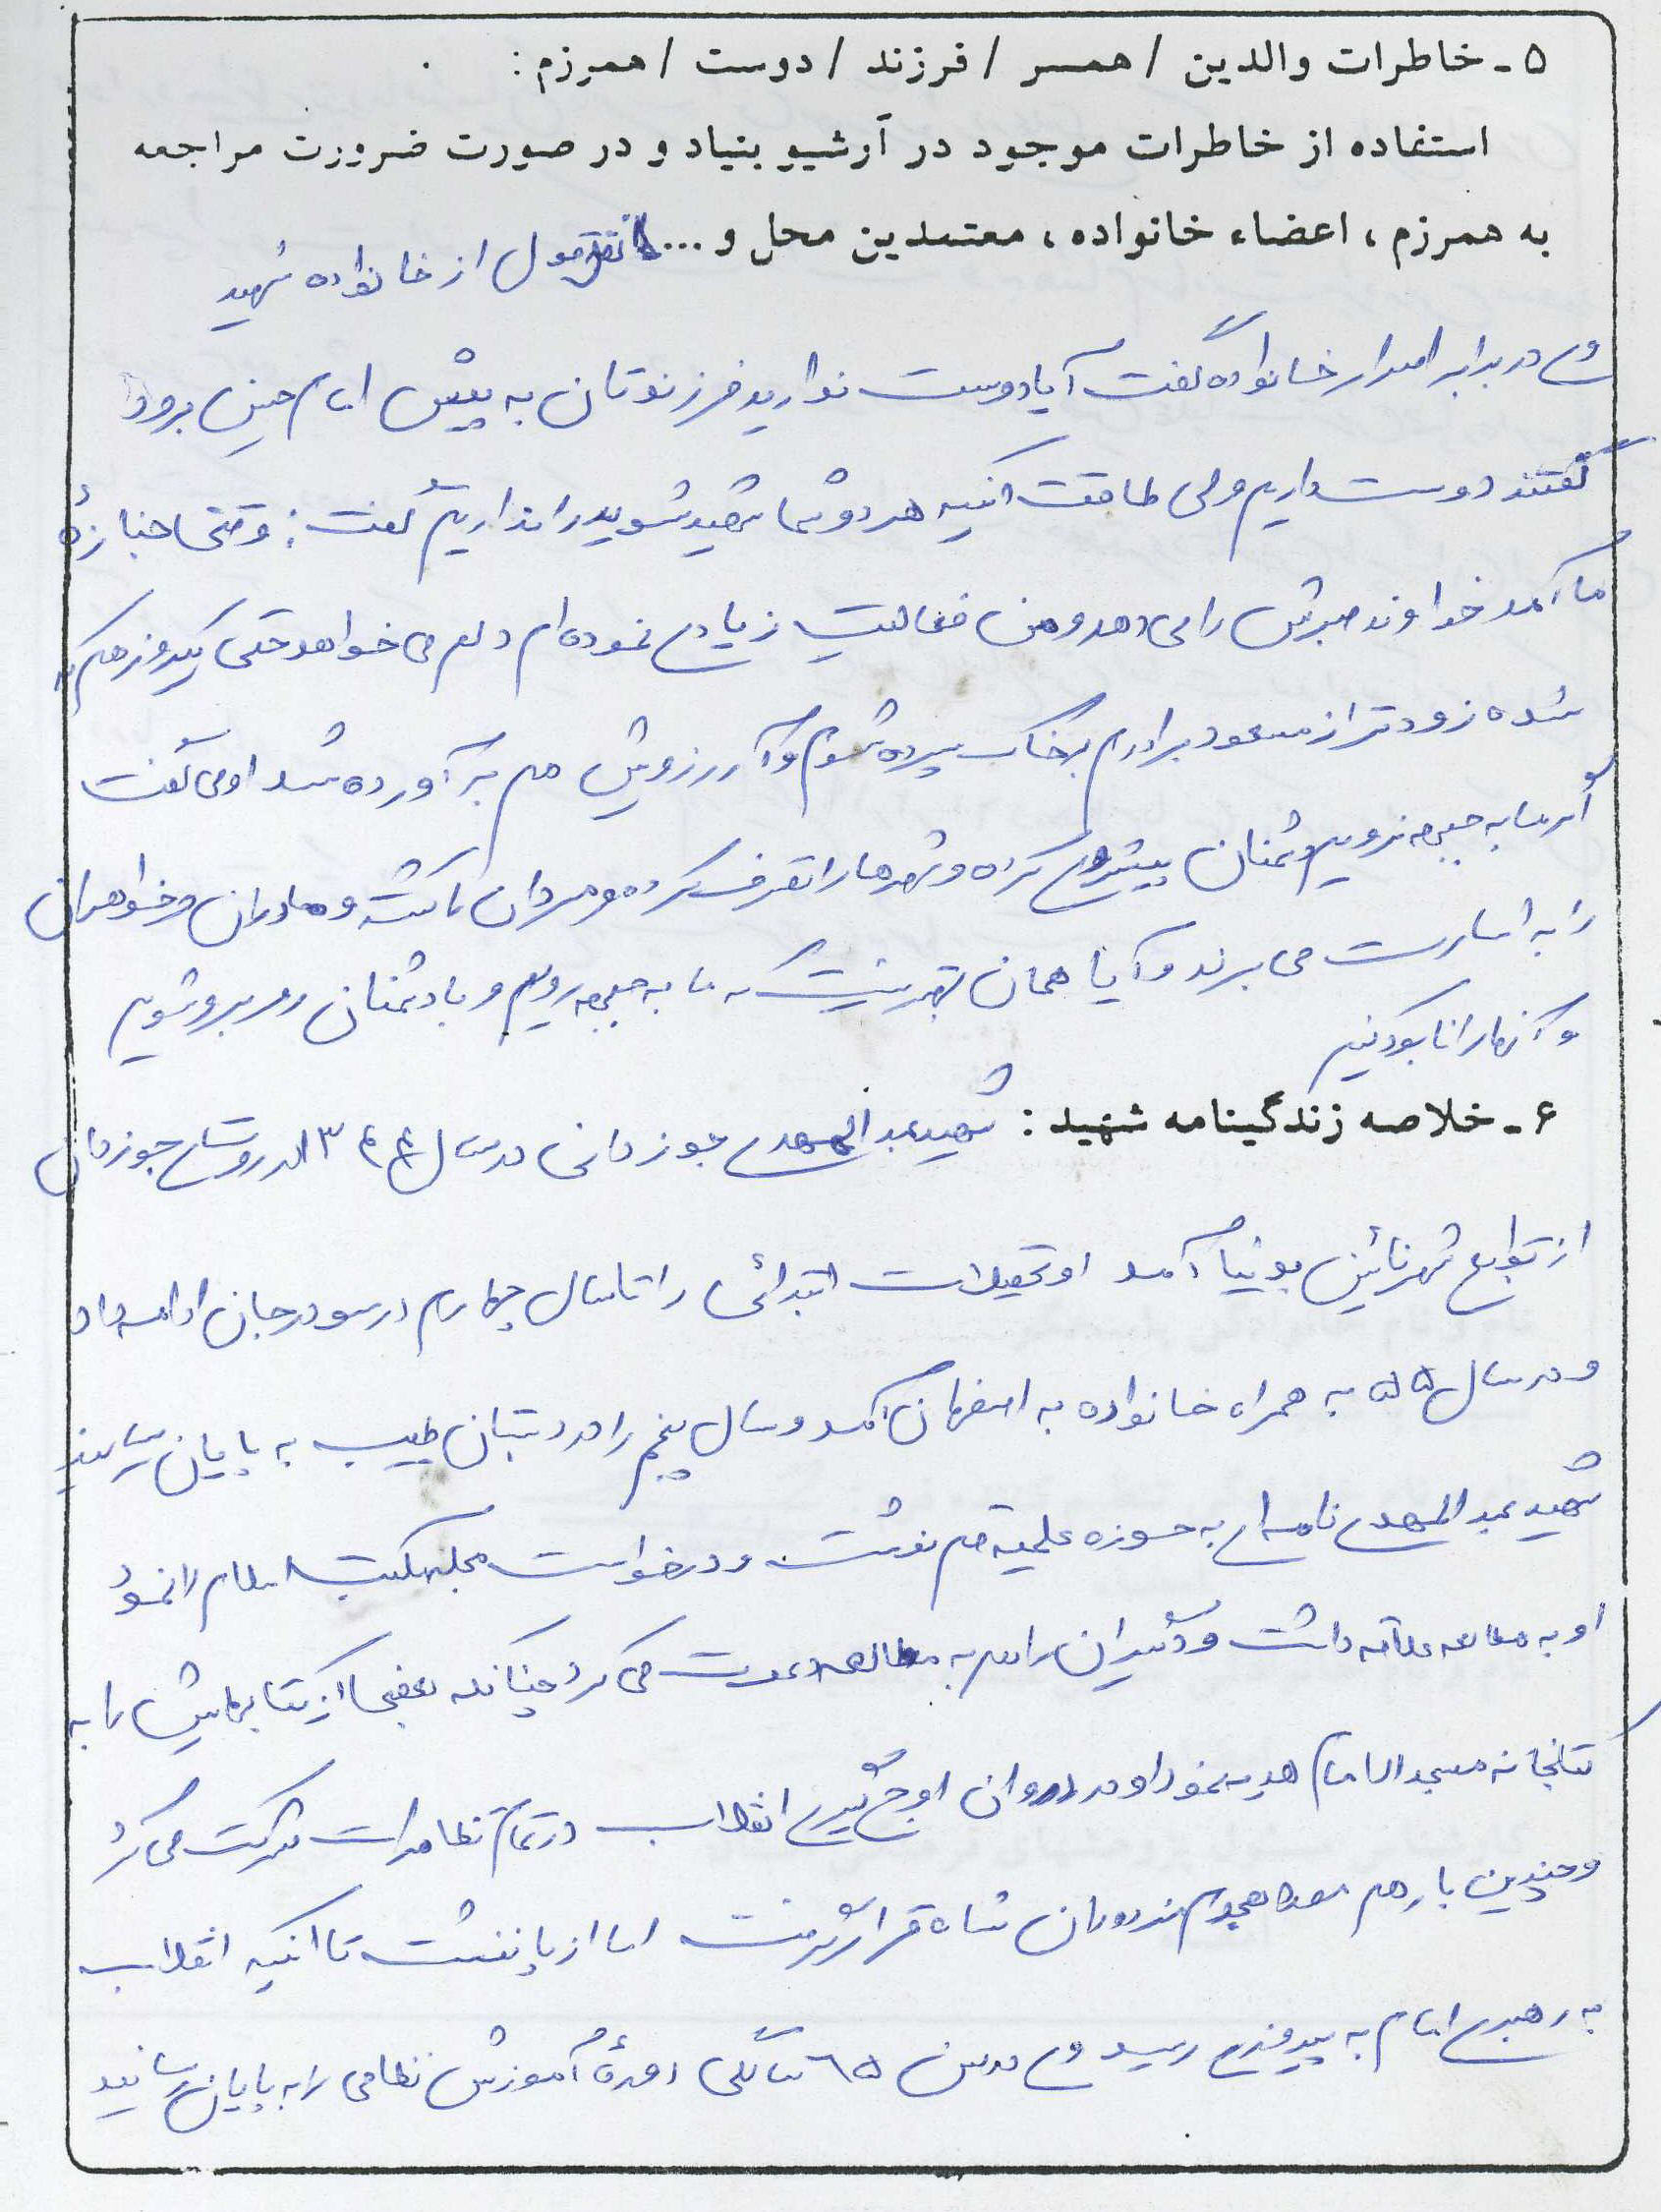 ۵ - خاطرات والدین / همسر / فرزند / دوست / همرزم :
استفاده از خاطرات موجود در آرشیو بنیاد و در صورت ضرورت مراجعه
به همرزم ، اعضاء خانواده ، معتمدین محل و ... نقل قول از خانواده شهید
وی در برابر اصرار خانواده گفت آیا دوست ندارید فرزندتان به پیش امام حسین برود
گفتند دوست داریم ولی طاقت اینکه هر دو شما شهید شوید را نداریم گفت : وقتی جنازهٔ
ما آمد خداوند صبرش را می دهد و من فعالیت زیادی نموده ام دلم می خواهد حتی یکروز هم که
شده زودتر از مسعود برادرم بخاک سپرده شوم و آرزویش هم برآورده شد او می گفت
اگر ما به جبهه نرویم دشمنان پیشروی کرده و شهرها را تصرف کرده و مردان را کشته و مادران و خواهران
را به اسارت می برند و آیا همان بهتر نیست که ما به جبهه رویم و با دشمنان روبرو شویم
و آنها را نابود کنیم
۶ - خلاصه زندگینامه شهید : شهید عبدالمهدی جوزدانی در سال ۱۳۴۴ در روستای جوزدان
از توابع شهر نائین بدنیا آمد او تحصیلات ابتدائی را تا سال چهارم در سودرجان ادامه داد
و در سال ۵۵ به همراه خانواده به اصفهان آمد و سال پنجم را در دبستان طبیب به پایان رسانید
شهید عبدالمهدی نامه ای به حوزه علمیه قم نوشت و درخواست مجله مکتب اسلام را نمود
او به مطالعه علاقه داشت و دیگران را هم به مطالعه دعوت می کرد چنانکه بعضی از کتابهایش را به
کتابخانه مسجد الامام هدیه نمود او در دوران اوج گیری انقلاب در تمام تظاهرات شرکت می کرد
و چندین بار هم مورد هجوم مزدوران شاه قرار گرفت اما از پا ننشست تا اینکه انقلاب
به رهبری امام به پیروزی رسید وی در سن سالگی دورهٔ آموزش نظامی را به پایان رسانید